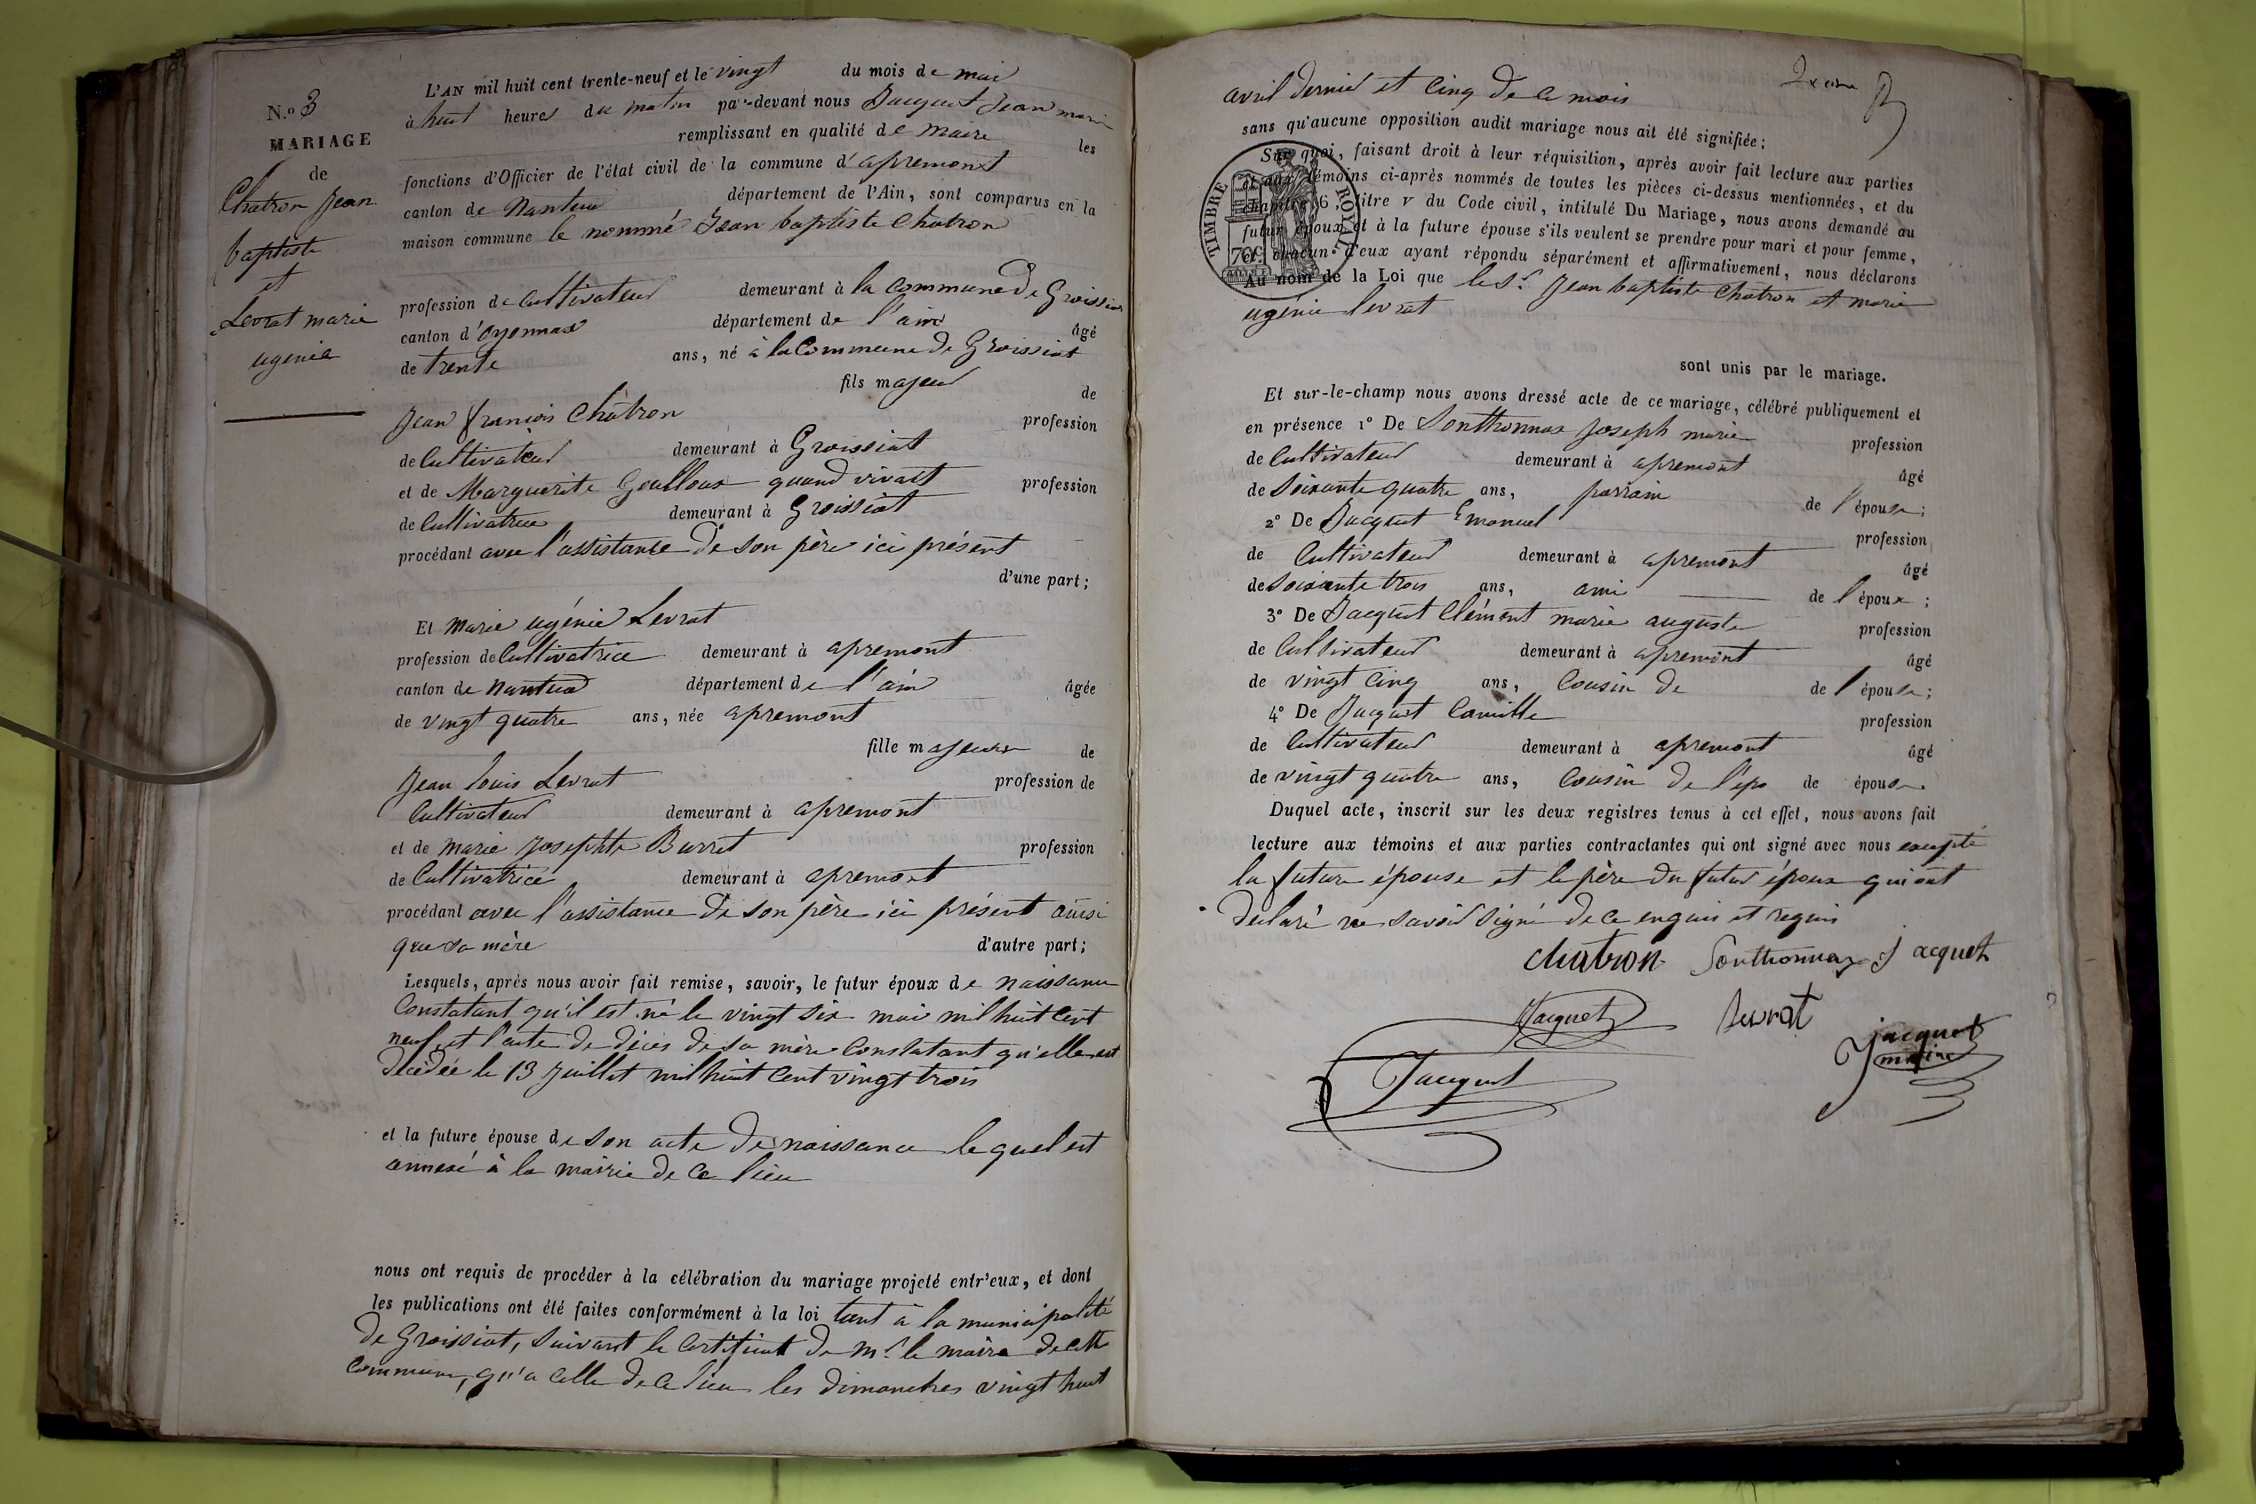 N.o 3
MARIAGE
de
Chatron Jean
baptiste
et
Levrat marie
ugénie
L'AN mil huit cent trente-neuf et le vingt du mois de mai
à huit heures du matin par-devant nous Jacquet Jean marie
remplissant en qualité de maire les
fonctions d'Officier de l'état civil de la commune d'apremont
canton de Nantua département de l'Ain, sont comparus en la
maison commune le nommé Jean baptiste Chatron
profession de cultivateur demeurant à la commune de Groissiat
canton d'oyonnax département de l'ain âgé
de trente ans, né à la Commune de Groissiat
fils majeur de
Jean françois Chatron profession
de Cultivateur demeurant à Groissiat
et de Marguerite Goulloux quand vivait profession
de Cultivatrice demeurant à Groissiat
procédant avec l'assistance de son père ici présent
d'une part;
Et Marie ugénie Levrat
profession de Cultivatrice demeurant à apremont
canton de Nantua département de l'ain âgée
de vingt quatre ans, née apremont
fille majeure de
Jean louis Levrat profession de
Cultivateur demeurant à apremont
et de marie Josephte Burret profession
de Cultivatrice demeurant à apremont
procédant avec l'assistance de son père ici présent ainsi
que sa mère d'autre part;
Lesquels, après nous avoir fait remise, savoir, le futur époux de naissance
Constatant qu'il est né le vingt six mai mil huit cent
neuf, et l'acte de décès de sa mère Constatant qu'elle est
décédée le 13 Juillet mil huit cent vingt trois
et la future épouse de son acte de naissance lequel est
annexé à la mairie de ce lieu
nous ont requis de procéder à la célébration du mariage projeté entr'eux, et dont
les publications ont été faites conformément à la loi tant à la municipalité
de Groissiat, suivant le certificat de Mr le maire de cette
Commune, qu'a celle de ce lieu les dimanches vingt huit
avril dernier et cinq de ce mois
sans qu'aucune opposition audit mariage nous ait été signifiée;
TIMBRE ROYAL
70c
Sur quoi, faisant droit à leur réquisition, après avoir fait lecture aux parties
et aux témoins ci-après nommés de toutes les pièces ci-dessus mentionnées, et du
chapitre 6, titre v du Code civil, intitulé Du Mariage, nous avons demandé au
futur époux et à la future épouse s'ils veulent se prendre pour mari et pour femme,
et chacun d'eux ayant répondu séparément et affirmativement, nous déclarons
Au nom de la Loi que le Sr Jean baptiste Chatron et marie
ugénie levrat
sont unis par le mariage.
Et sur-le-champ nous avons dressé acte de ce mariage, célébré publiquement et
en présence 1° De Sonthonnax Joseph marie profession
de Cultivateur demeurant à apremont âgé
de Soixante quatre ans, parrain de l'épouse;
2° De Jacquet Emanuel profession
de Cultivateur demeurant à apremont âgé
de Soixante trois ans, ami de l'époux;
3° De Jacquet Clément marie auguste profession
de Cultivateur demeurant à apremont âgé
de vingt cinq ans, Cousin de de l'épouse;
4° De Jacquet Camille profession
de Cultivateur demeurant à apremont âgé
de vingt quatre ans, Cousin de l'epo de épouse.
Duquel acte, inscrit sur les deux registres tenus à cet effet, nous avons fait
lecture aux témoins et aux parties contractantes qui ont signé avec nous excepté
la future épouse et le père du futur époux qui ont
déclaré ne savoir signé de ce enquis et requis
Chatron Sonthonnax Jacquet
Jacquet Levrat
Jacquet
Jacquet
maire